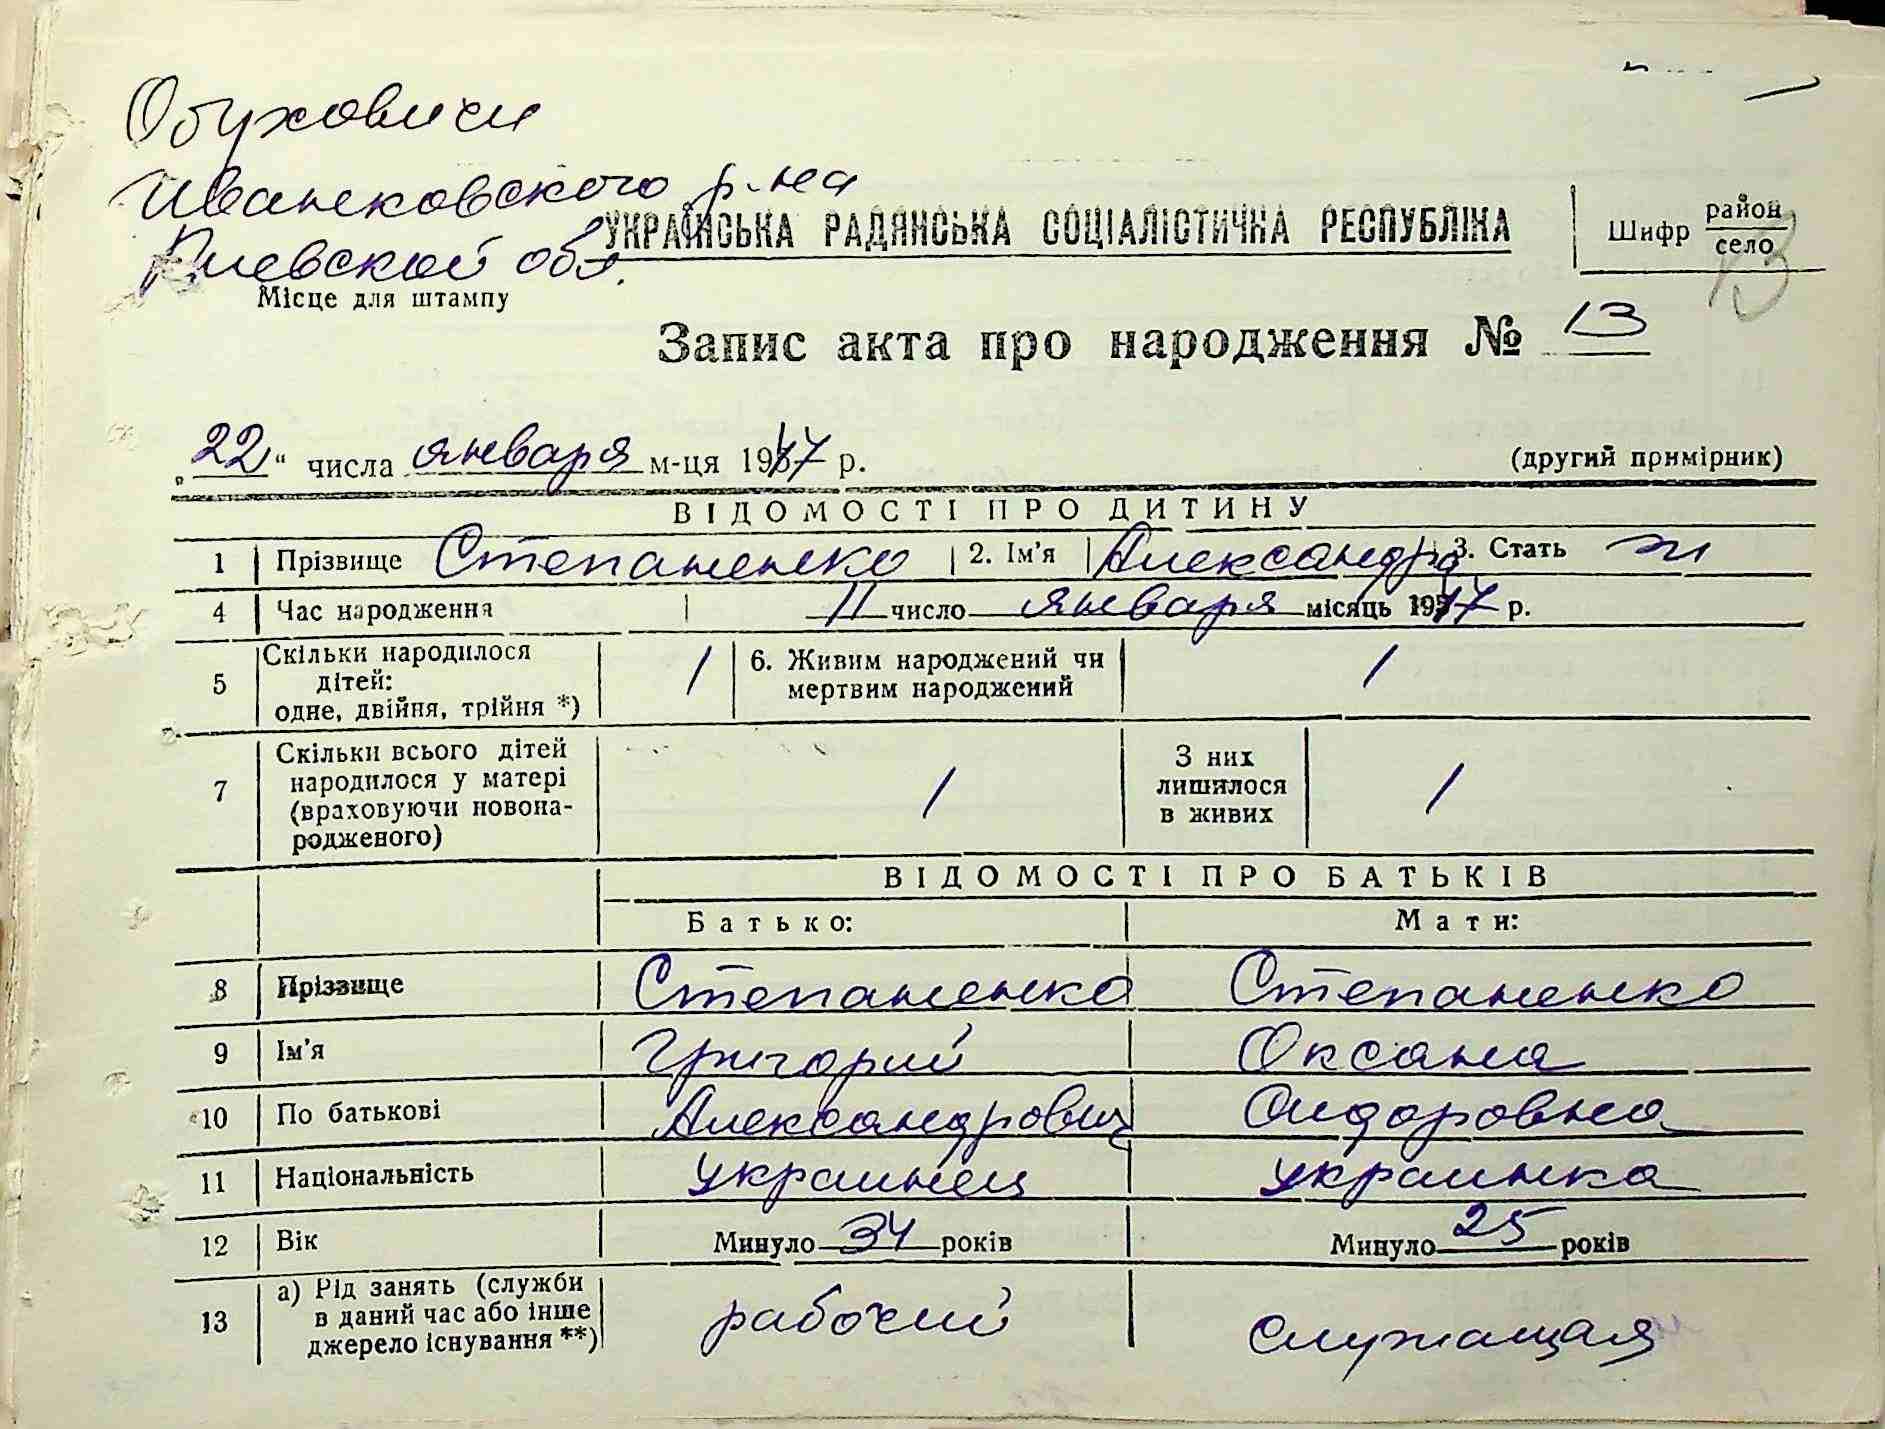 Обуховичи
Иванковского р-на
Киевской обл.
Місце для штампу
УКРАЇНСЬКА РАДЯНСЬКА СОЦІАЛІСТИЧНА РЕСПУБЛІКА
Шифр район
село
13
Запис акта про народження № 13
„22“ числа января м-ця 1947 р.
(другий примірник)
ВІДОМОСТІ ПРО ДИТИНУ
1 Прізвище Степаненко 2. Ім'я Александра 3. Стать ж
4 Час народження 11 число января місяць 1947 р.
5 Скільки народилося дітей: одне, двійня, трійня *) 1 6. Живим народжений чи мертвим народжений 1
7 Скільки всього дітей народилося у матері (враховуючи новонародженого) 1 З них лишилося в живих 1
ВІДОМОСТІ ПРО БАТЬКІВ
Батько: Мати:
8 Прізвище Степаненко Степаненко
9 Ім'я Григорий Оксана
10 По батькові Александрович Сидоровна
11 Національність украинец украинка
12 Вік Минуло 34 років Минуло 25 років
13 а) Рід занять (служби в даний час або інше джерело існування **) рабочий служащая